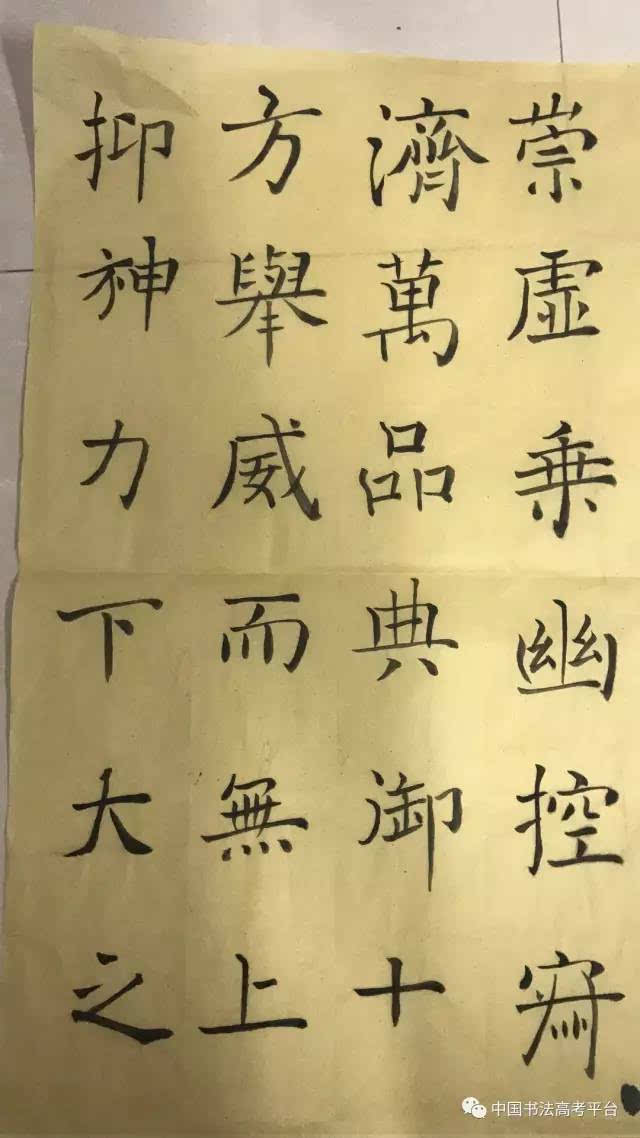 崇虛乗幽控寂
濟萬品典御十
方舉威而無上
抑神力下大之
中国书法高考平台